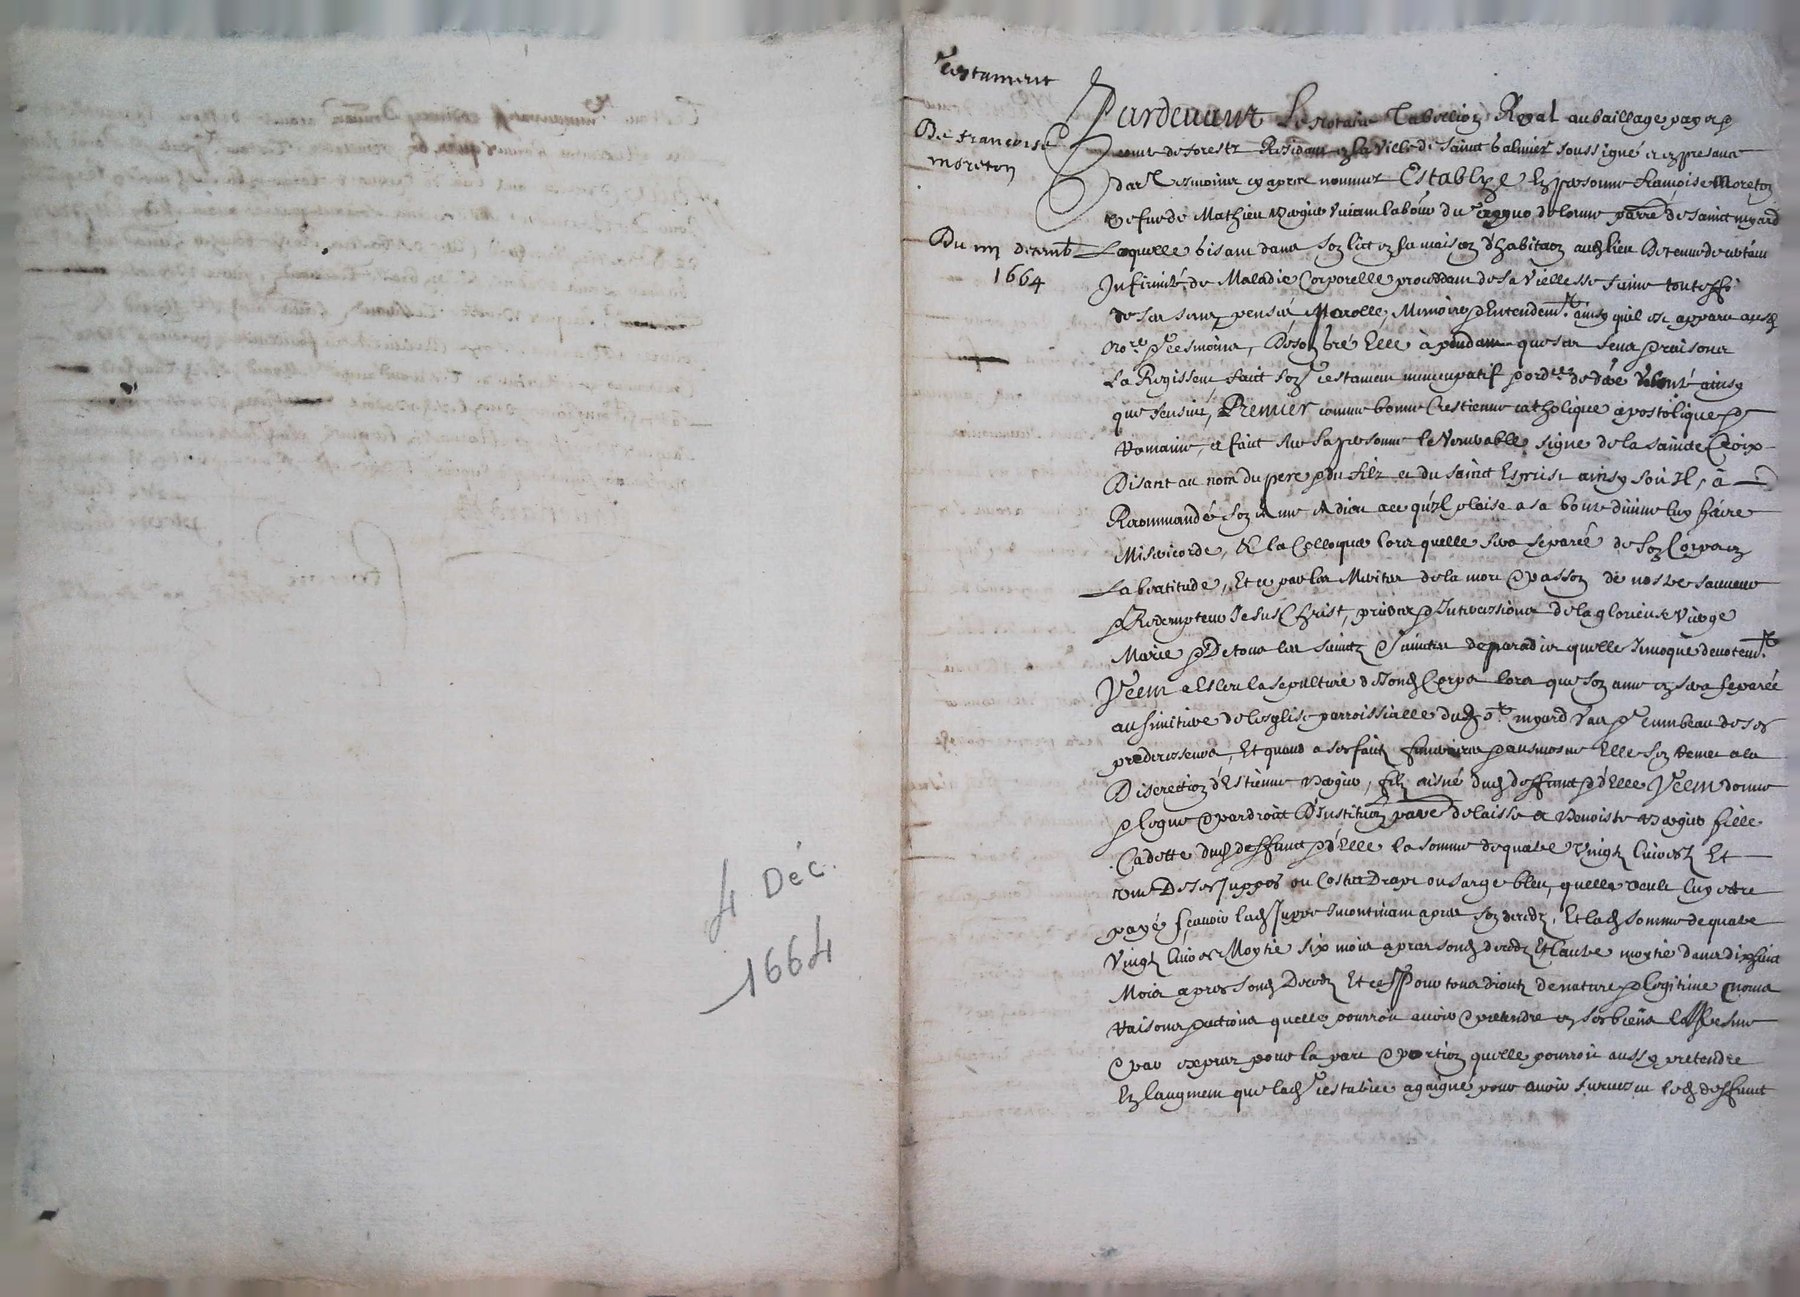 4 Déc.
1664
Testament
De francoise
moreton
Du iiii decemb
1664
Pardevant Le Notaire Tabellion Royal au bailliage pays &
comté de forestz Residant en la ville de Sainct Galmier soussigné et en presance
des tesmoins cy apres nommez Establye En personne francoise Moreton
vefve de Mathieu vivant labour du delorme parre de Sainct myard
Laquelle gisant dans son lict en sa maison d'habitaon audt lieu Detenue de certain
Infirmité de Maladie Corporelle proceddant de sa viellesse saine touteffois
de ses sens pensée Parolle, Memoire & Entendemt ainsy quil est apparu ausdt
No.re & tesmoins, De son gré Elle à pendant que ses sens & raisons
La Regissent faict son testament nuncupatif & ord.ce de d.re volonté ainsy
que s'ensuit, Premier comme bonne Crestienne catholique apostolique &
Romaine, a faict sur sa personne le venerable signe de la saincte Croix
Disant au nom du pere & du filz et du Sainct Esprist ainsy soit Il, à
Recommandé son Ame A Dieu ace qu'il plaise a sa bonté divine luy faire
Misericorde, & la Colloquer lors quelle sera separée de son Corps en
La beatitude, Et ce par les Merites de la mort & passion de nostre sauveur
& Redempteur Jesus Christ, prieres & Intercessions de la glorieuse Vierge
Marie & De tous les Saintz & Sainctes de paradis quelle Invoque devotemt
Item a Esleu la sepulture de sondt Corps lors que son ame en sera separée
au simitiere de l'esglise parroissialle dudt St myard Vau & tumbeau de ses
predecesseurs, Et quand a ses faictz funeraires & ausmosne Elle s'en remet a la
Discretion d'Estienne filz aisné dudt deffunct & d'Elle Item donne
& legue & par droict D'Institution par.re delaisse a Benoiste fille
Cadette dudt deffunct & d'Elle la somme de quatre vingtz livres tz Et
une De ses Juppes ou Drap ou sarge bleu, quelle veult luy estre
payé scavoir ladt Juppe Incontinant apres son decedz, Et ladt somme de quatre
Vingtz livres Moytié six mois apres sondt decedz Et l'autre moytié dans dix huict
Mois apres sondt Decedz Et ce pour tous droictz de nature & legitime noms
Raisons & actions quelle pourroit avoir & pretendre en ses biens
& par expres pour la part & portion quelle pourroit aussy pretendre
En l'augment que ladt testatrice a gaigné pour avoir survescu ledt deffunct